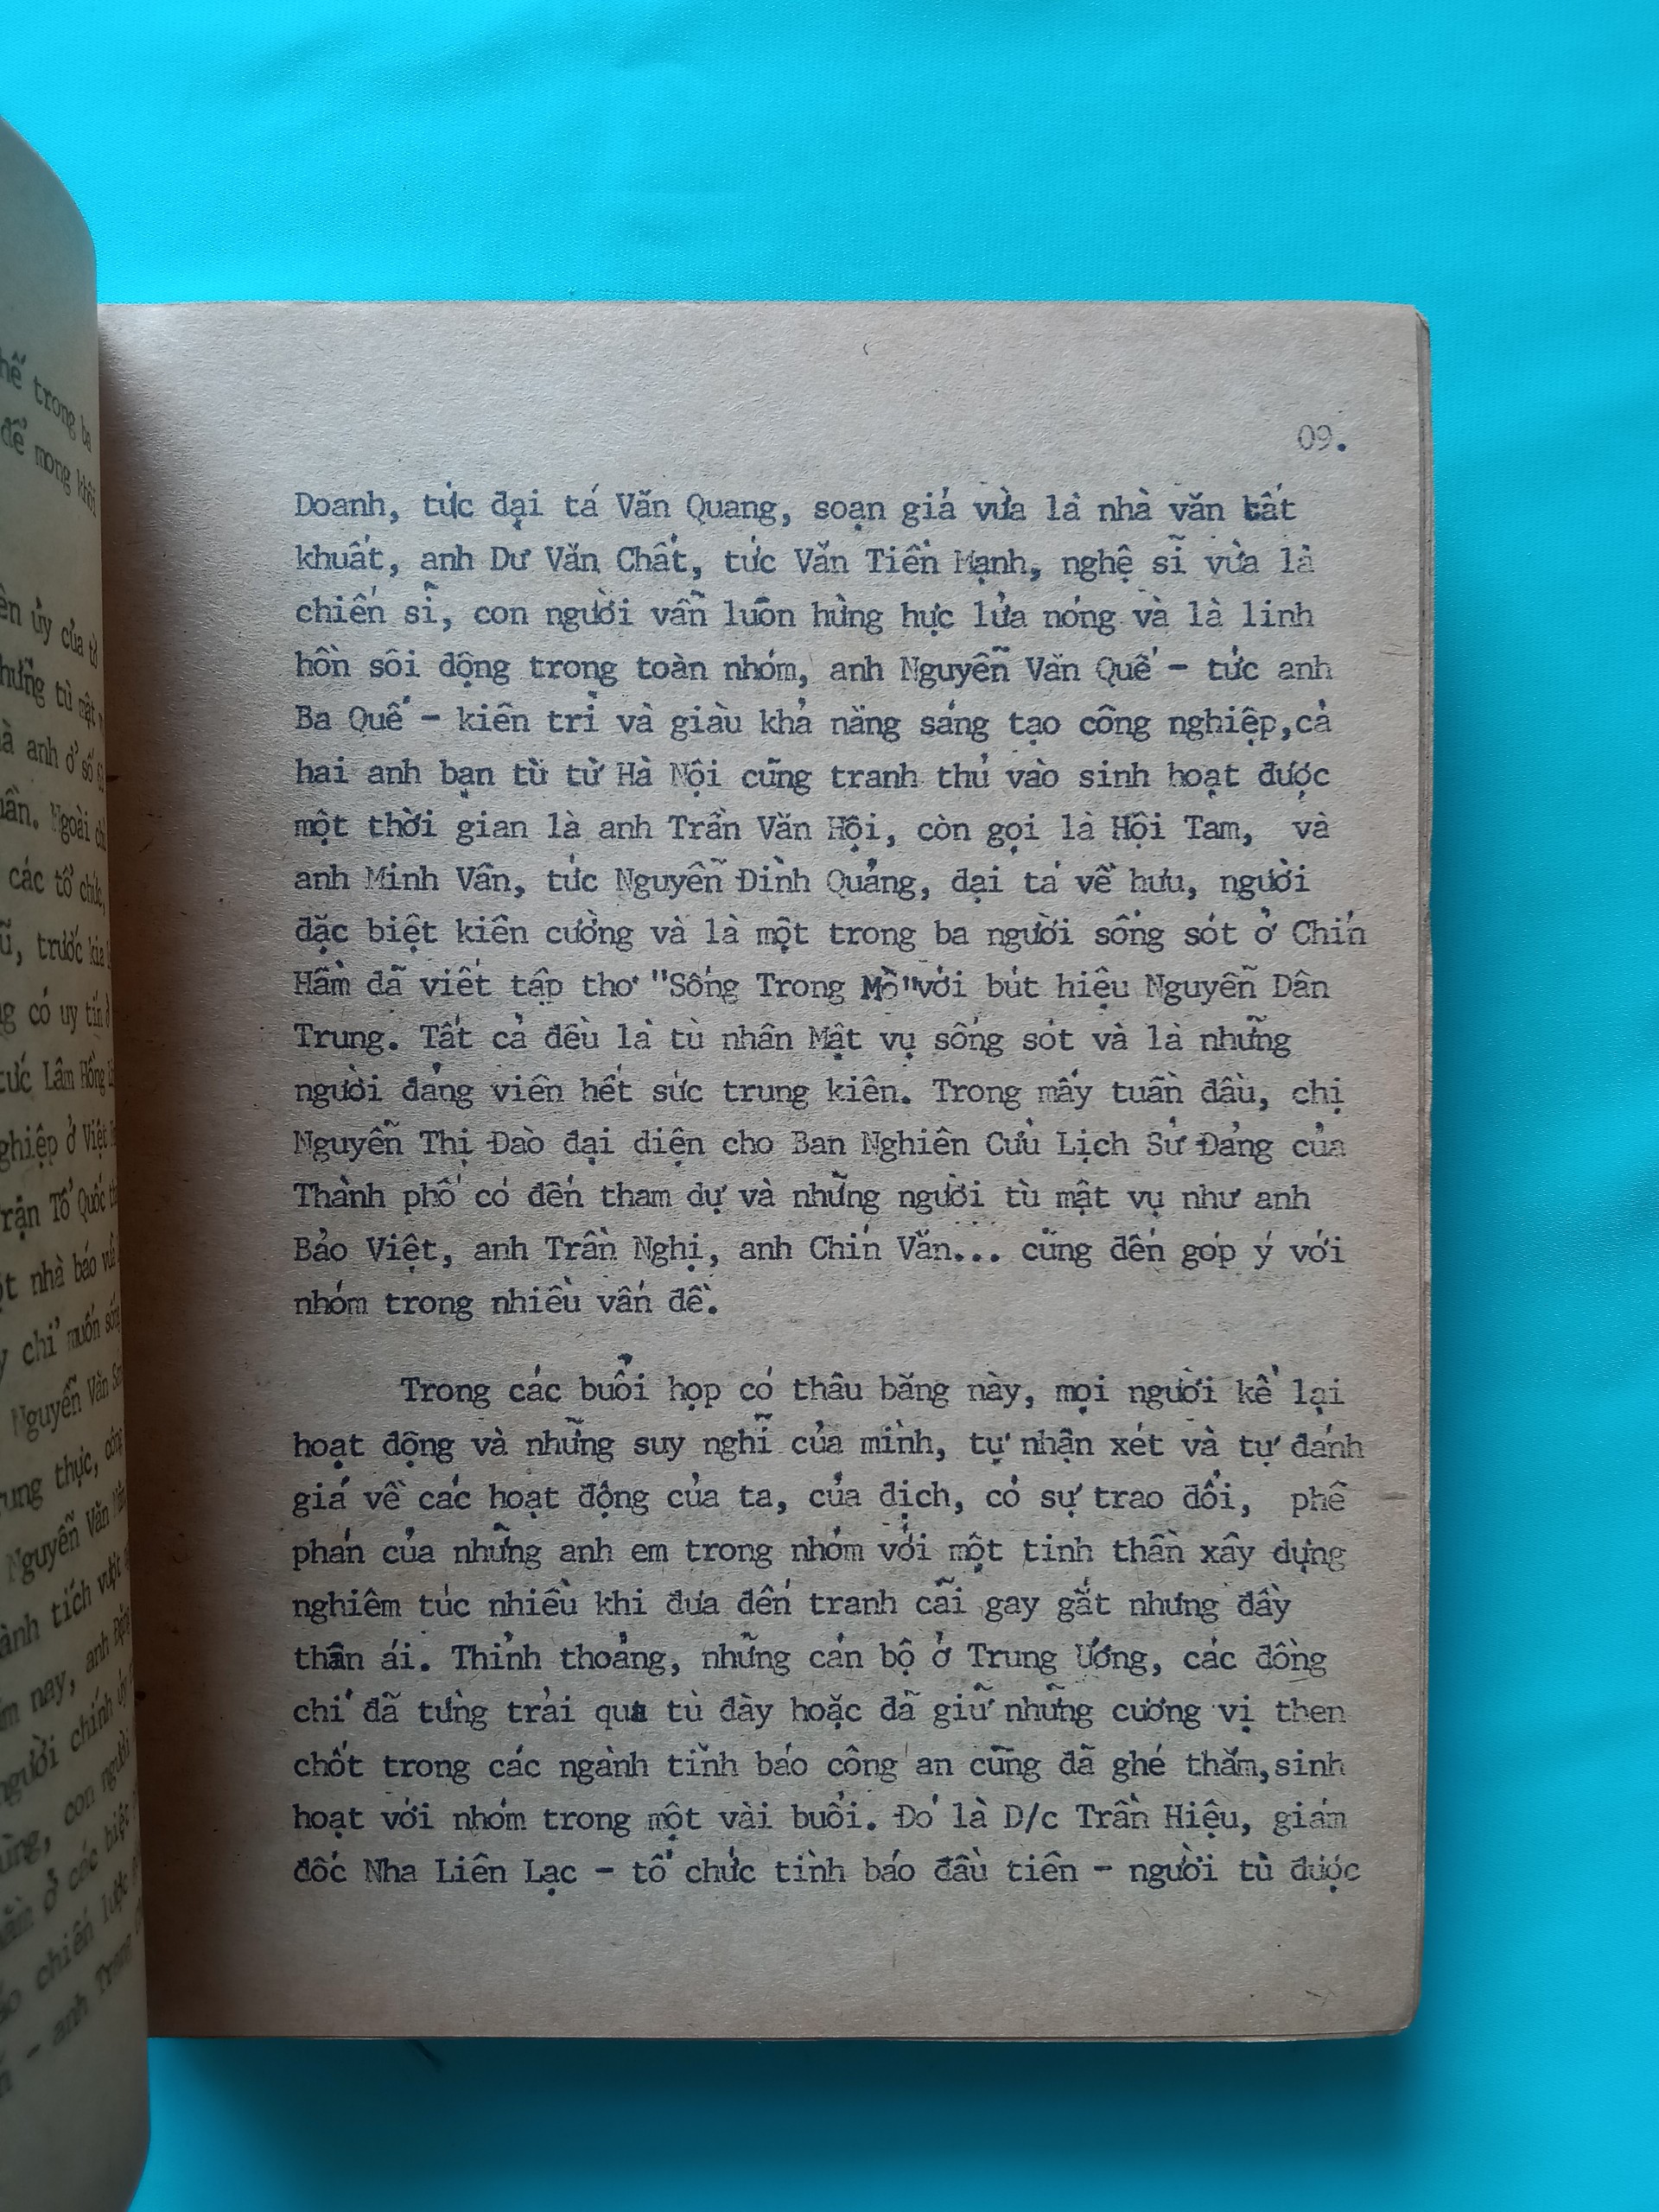 09.
Doanh, tức đại tá Văn Quang, soạn giả vừa là nhà văn bất
khuất, anh Dư Văn Chất, tức Văn Tiến Mạnh, nghệ sĩ vừa là
chiến sĩ, con người vẫn luôn hừng hực lửa nóng và là linh
hồn sôi động trong toàn nhóm, anh Nguyễn Văn Quế - tức anh
Ba Quế - kiên trì và giàu khả năng sáng tạo công nghiệp,cả
hai anh bạn tù từ Hà Nội cũng tranh thủ vào sinh hoạt được
một thời gian là anh Trần Văn Hội, còn gọi là Hội Tam, và
anh Minh Vân, tức Nguyễn Đình Quảng, đại tá về hưu, người
đặc biệt kiên cường và là một trong ba người sống sót ở Chín
Hầm đã viết tập thơ "Sống Trong Mồ"với bút hiệu Nguyễn Dân
Trung. Tất cả đều là tù nhân Mật vụ sống sót và là những
người đảng viên hết sức trung kiên. Trong mấy tuần đầu, chị
Nguyễn Thị Đào đại diện cho Ban Nghiên Cứu Lịch Sử Đảng của
Thành phố có đến tham dự và những người tù mật vụ như anh
Bảo Việt, anh Trần Nghị, anh Chín Văn... cũng đến góp ý với
nhóm trong nhiều vấn đề.
Trong các buổi họp có thâu băng này, mọi người kể lại
hoạt động và những suy nghĩ của mình, tự nhận xét và tự đánh
giá về các hoạt động của ta, của địch, có sự trao đổi, phê
phán của những anh em trong nhóm với một tinh thần xây dựng
nghiêm túc nhiều khi đưa đến tranh cãi gay gắt nhưng đầy
thân ái. Thỉnh thoảng, những cán bộ ở Trung Ương, các đồng
chí đã từng trải qua tù đày hoặc đã giữ những cương vị then
chốt trong các ngành tình báo công an cũng đã ghé thăm,sinh
hoạt với nhóm trong một vài buổi. Đó là D/c Trần Hiệu, giám
đốc Nha Liên Lạc - tổ chức tình báo đầu tiên - người tù được